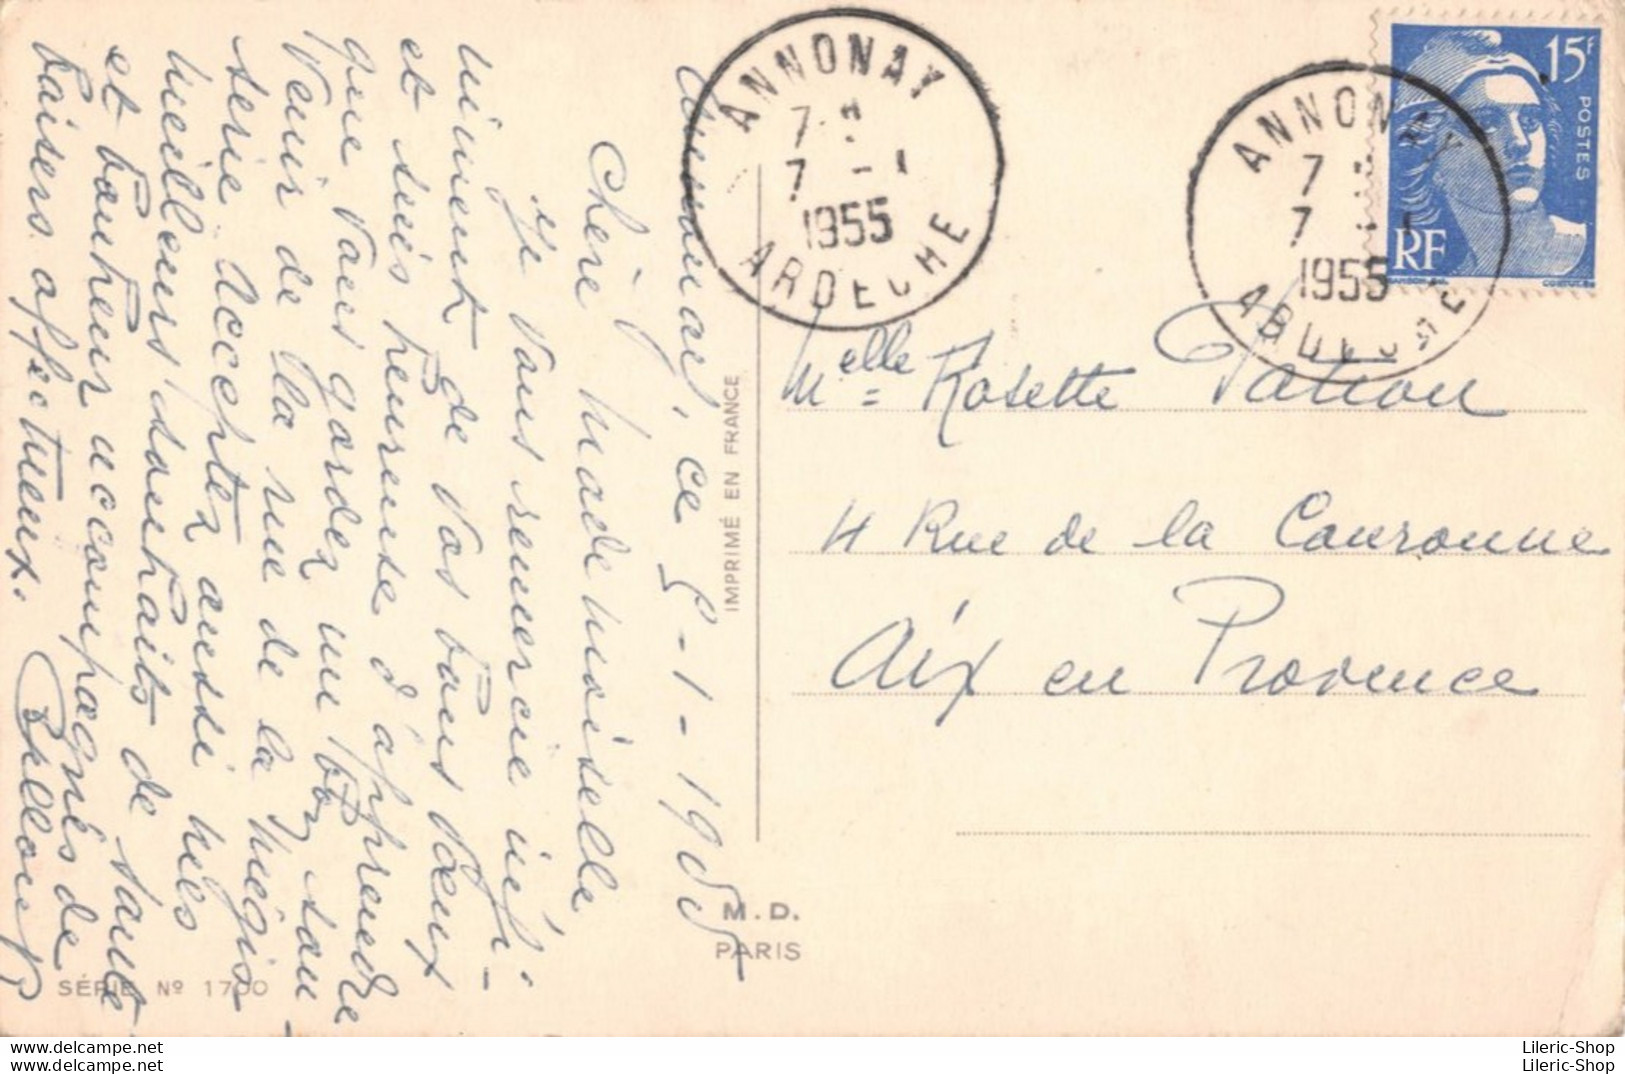 Annonay, ce 5-1-1955
Chère Mademoiselle
Je vous remercie infi-
niment de vos bons vœux
et suis heureuse d'apprendre
que vous gardez un bon sou-
venir de la rue de la
serie Acceptez aussi mes
meilleurs souhaits de
et bonheur accompagnés de
baisers affectueux.
IMPRIMÉ EN FRANCE
M.D.
PARIS
SÉRIE Nº 1700
ANNONAY
7
7 - 1
1955
ARDECHE
ANNONAY
7
7 - 1
1955
ARDECHE
15F
POSTES
RF
Melle Rosette
4 Rue de la Couronne
Aix en Provence
www.delcampe.net
www.delcampe.net
Lileric-Shop
Lileric-Shop